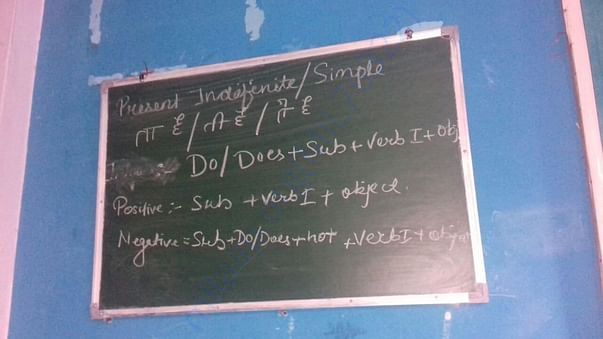 Present Indefenite/Simple
ता है / ती है / ते है
Do/Does+Sub+Verb I+obj
Positive:- Sub + verb I + object.
Negative=Sub+Do/Does+not +Verb I+object